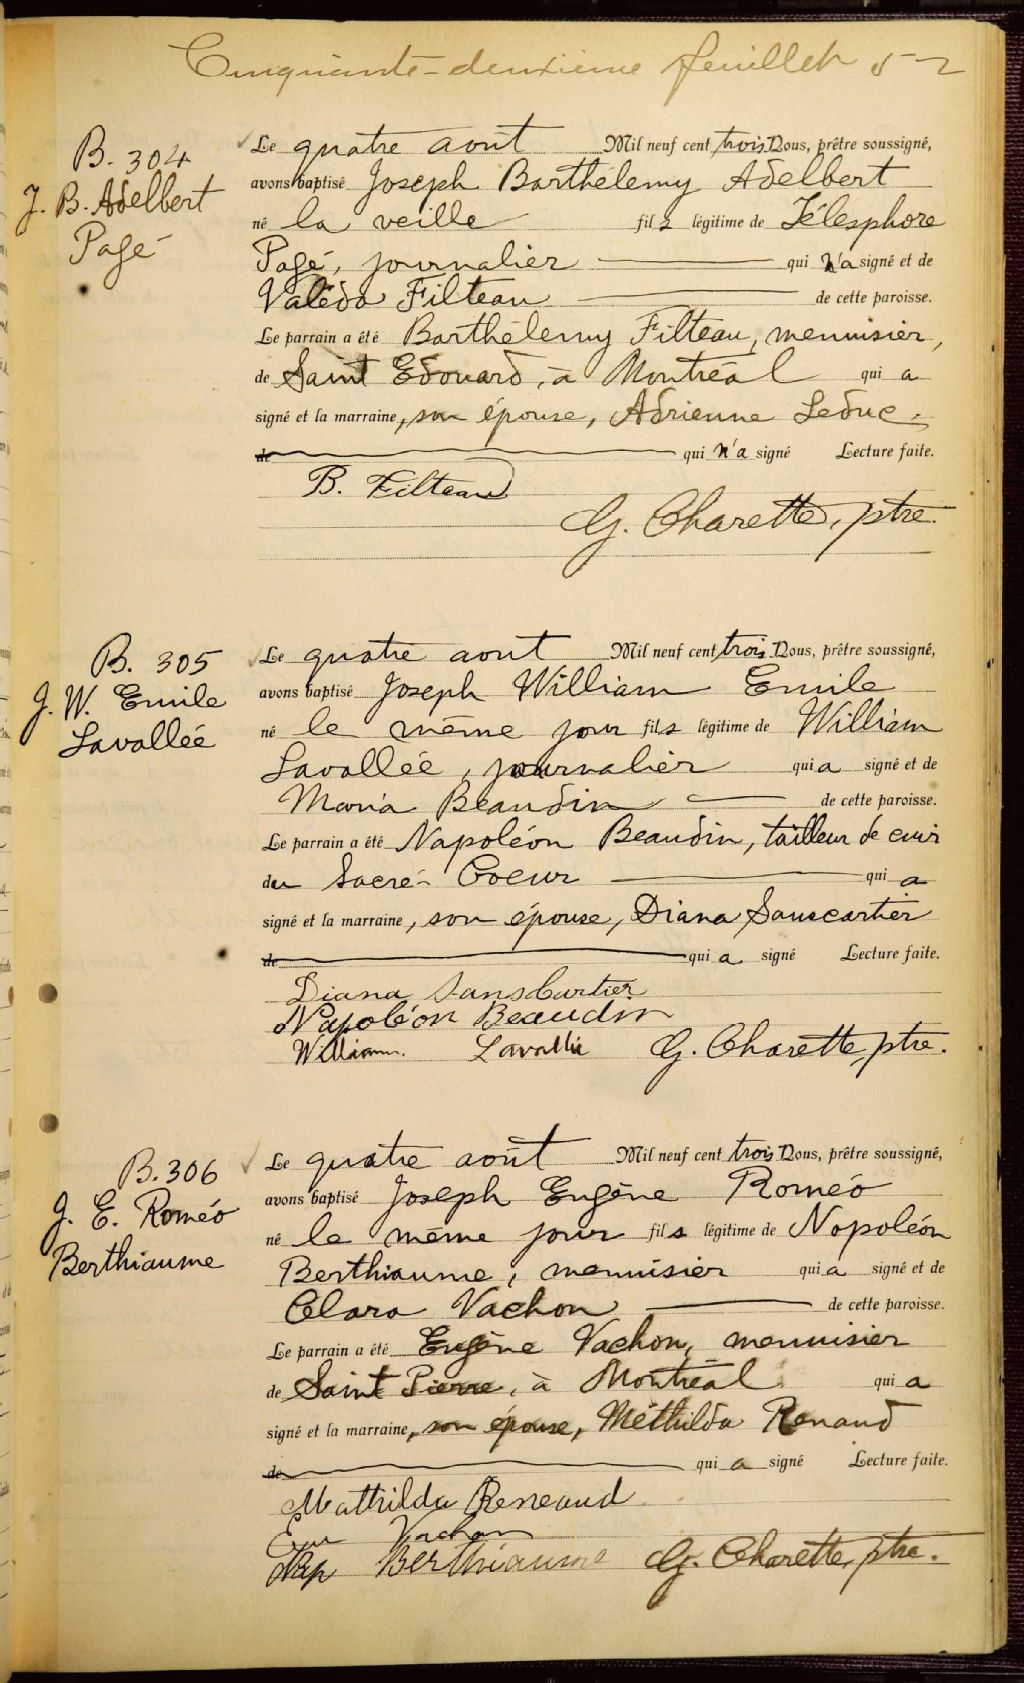 Cinquante-deuxième feuillet 52
B. 304
J. B. Adelbert
Pagé
Le quatre août Mil neuf cent trois Nous, prêtre soussigné,
avons baptisé Joseph Barthélemy Adelbert
né la veille fils légitime de Télesphore
Pagé, journalier qui n'a signé et de
Valéda Filteau de cette paroisse.
Le parrain a été Barthélemy Filteau, menuisier,
de Saint Edouard, à Montréal qui a
signé et la marraine, son épouse, Adrienne Leduc.
de qui n'a signé Lecture faite.
B. Filteau
G. Charette, ptre.
B. 305
J. W. Emile
Lavallée
Le quatre août Mil neuf cent trois Nous, prêtre soussigné,
avons baptisé Joseph William Emile
né le même jour fils légitime de William
Lavallée, journalier qui a signé et de
Maria Beaudin de cette paroisse.
Le parrain a été Napoléon Beaudin, tailleur de cuir
du Sacré-Coeur qui a
signé et la marraine, son épouse, Diana Sanscartier
de qui a signé Lecture faite.
Diana SansCartier
Napoléon Beaudin
William Lavallée G. Charette, ptre.
B. 306
J. E. Roméo
Berthiaume
Le quatre août Mil neuf cent trois Nous, prêtre soussigné,
avons baptisé Joseph Eugène Roméo
né le même jour fils légitime de Napoléon
Berthiaume, menuisier qui a signé et de
Clara Vachon de cette paroisse.
Le parrain a été Eugène Vachon, menuisier
de Saint Pierre, à Montréal qui a
signé et la marraine, son épouse, Méthilda Renaud
de qui a signé Lecture faite.
Mathilda Reneaud
Vachon
Nap Berthiaume G. Charette, ptre.